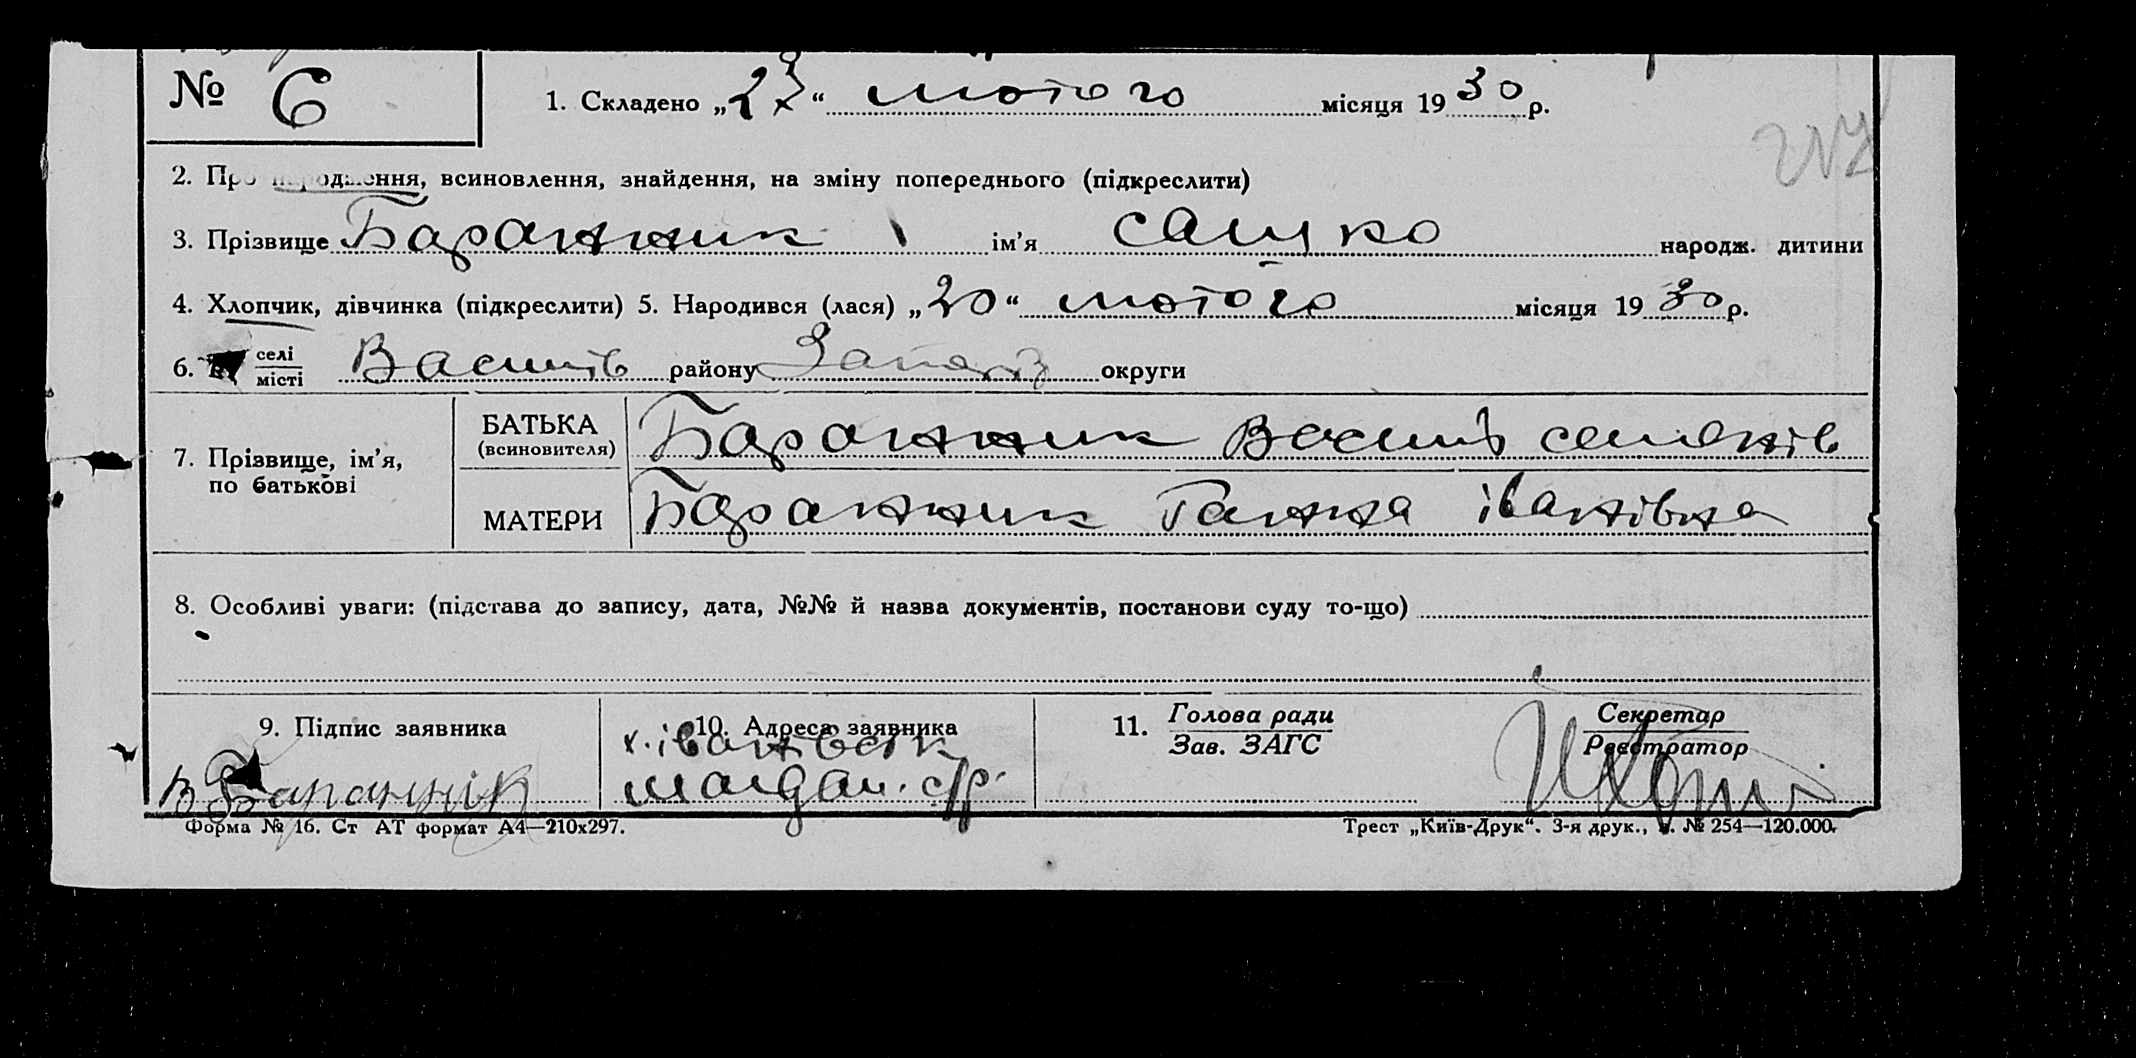 № 6
1. Складено „23“ лютого місяця 1930 р.
2. Про народження, всиновлення, знайдення, на зміну попереднього (підкреслити)
3. Прізвище Баранник ім’я сашко народж. дитини
4. Хлопчик, дівчинка (підкреслити) 5. Народився (лася) „20“ лютого місяця 1930 р.
6. В селі
місті Васить району округи
7. Прізвище, ім’я,
по батькові
БАТЬКА
(всиновителя)
Баранник Василь семенів
МАТЕРИ
Баранник Ганна іванівна
8. Особливі уваги: (підстава до запису, дата, №№ й назва документів, постанови суду то-що)
9. Підпис заявника
В Баранник
10. Адреса заявника
х. іванівськ
с/р.
11. Голова ради
Зав. ЗАГС
Секретар
Реєстратор
Форма № 16. Ст АТ формат А4—210х297.
Трест „Київ-Друк“. 3-я друк., з. № 254—120.000.